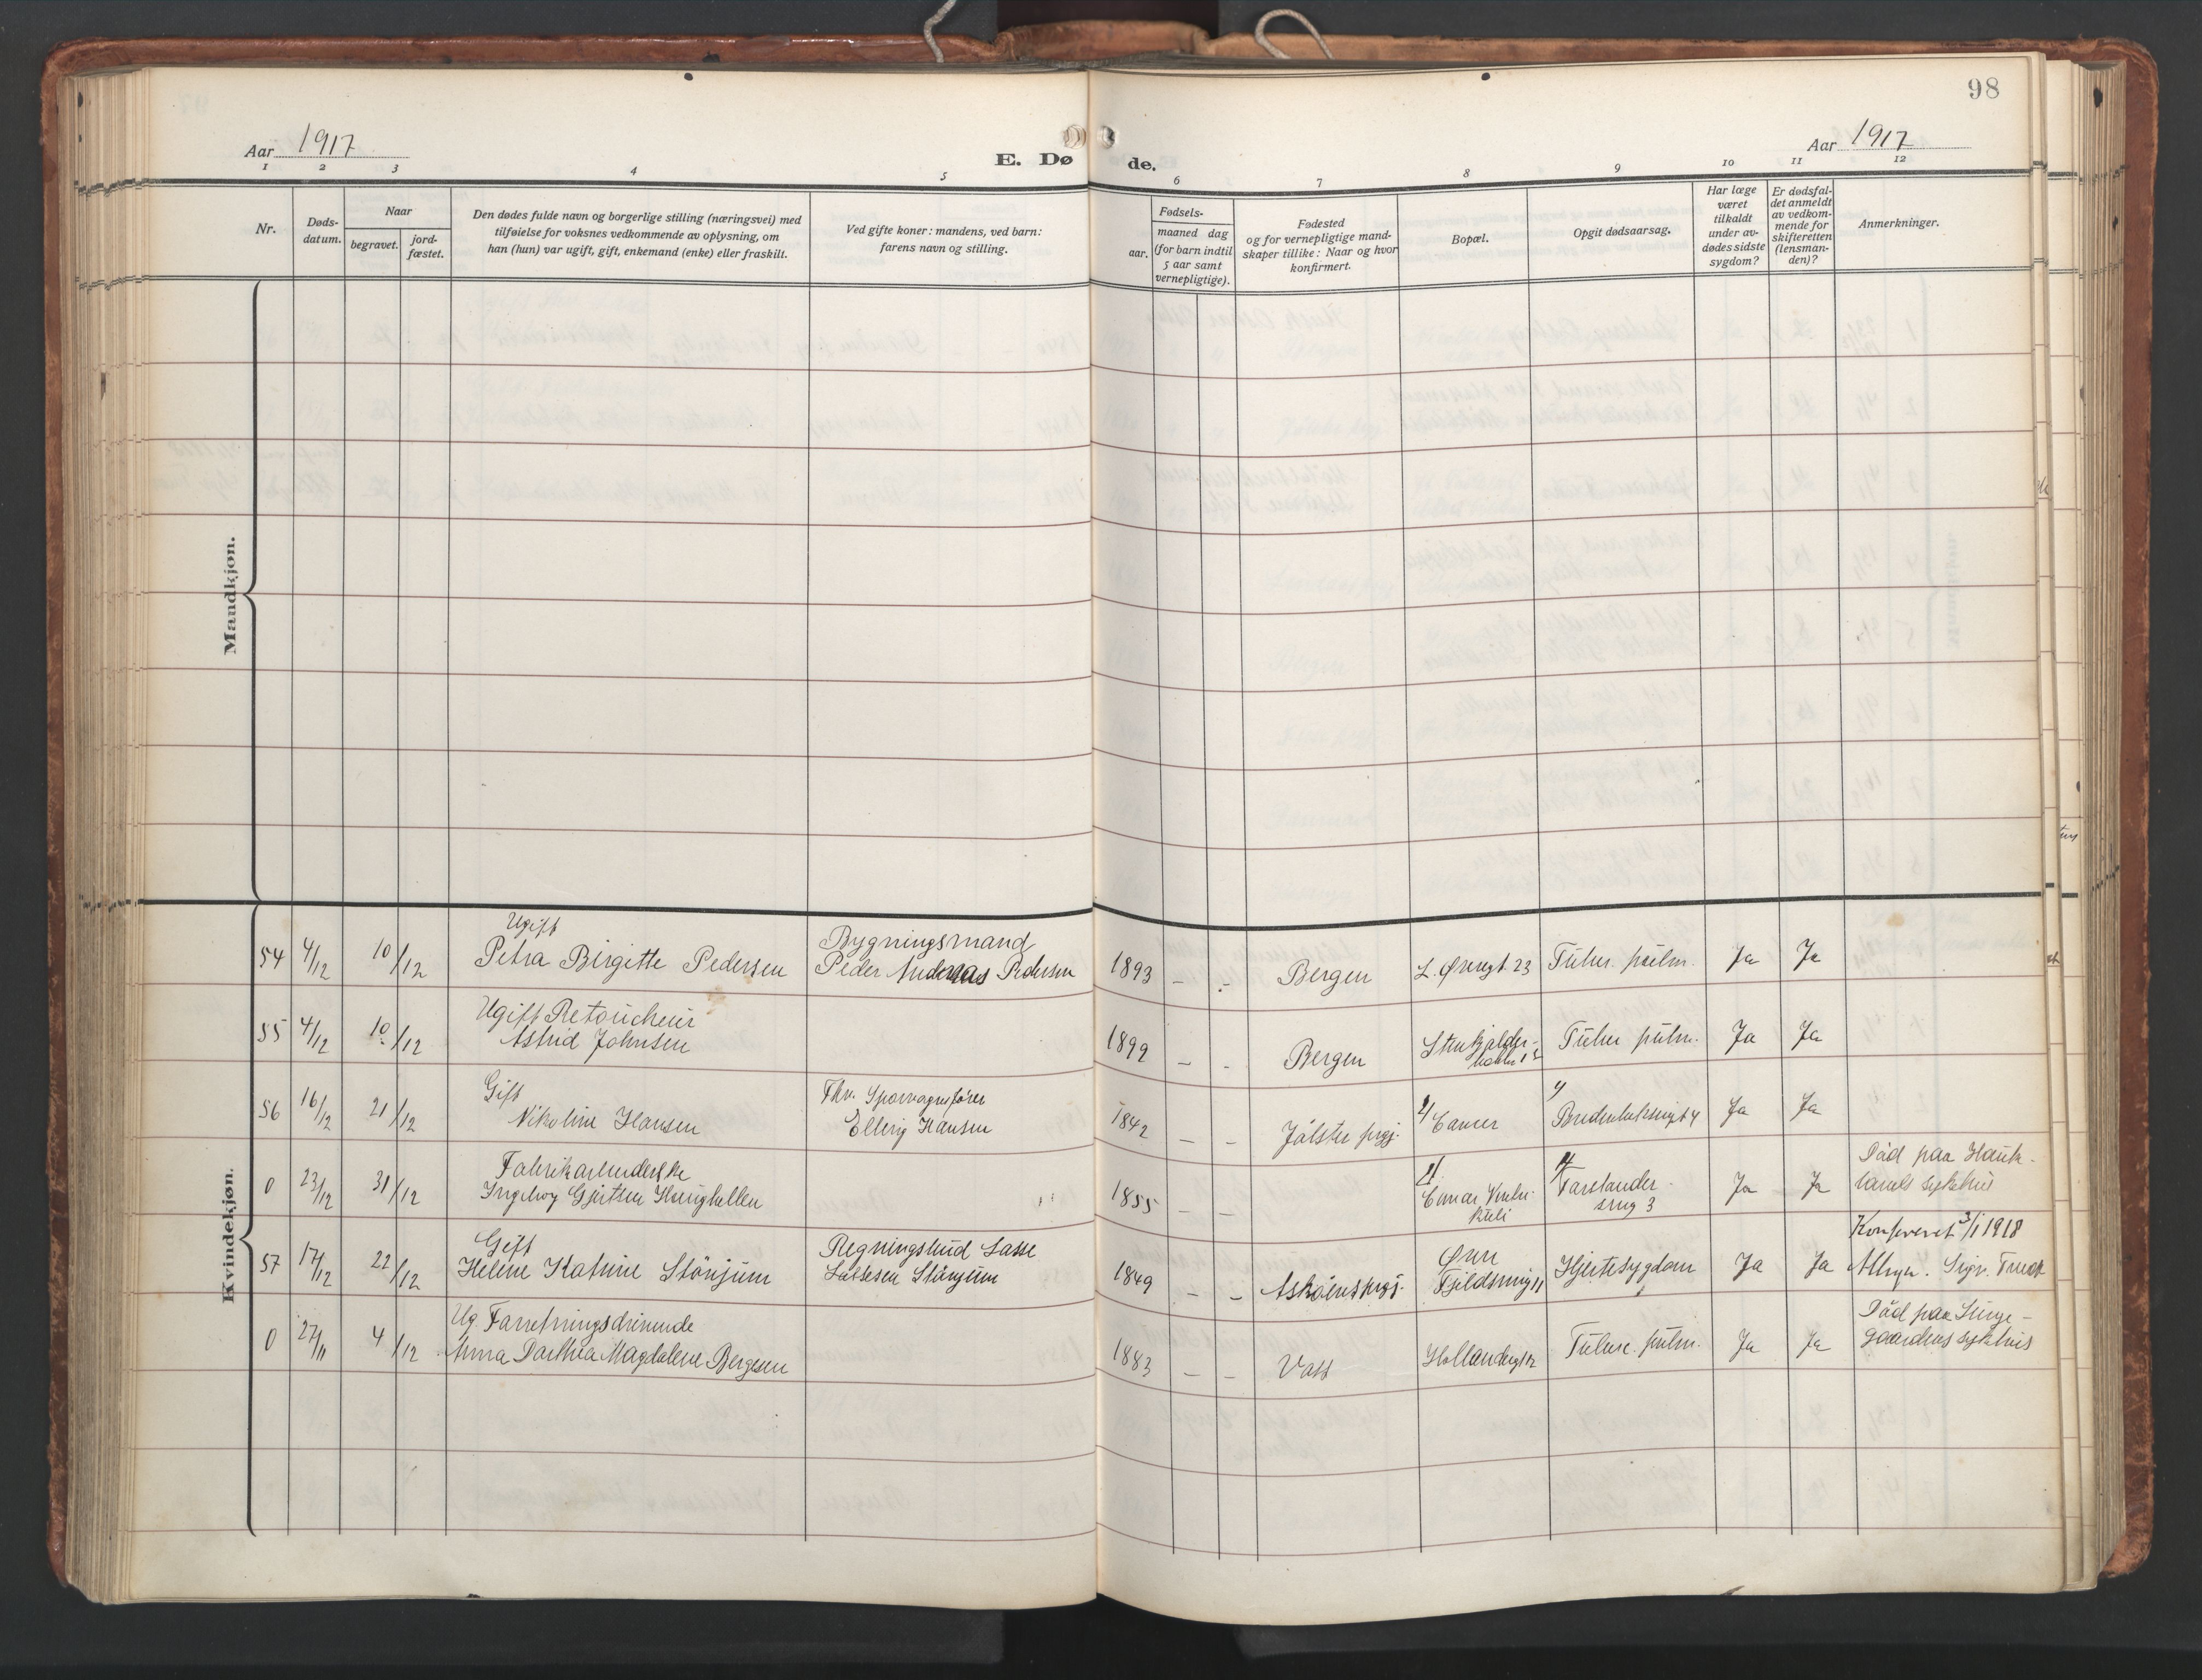 98
Aar 1917
E. Dø
de.
Aar 1917
1 2 3 4 5 6 7 8 9 10 11 12
Nr.
Døds-
datum.
Naar
begravet.
jord-
fæstet.
Den dødes fulde navn og borgerlige stilling (næringsvei) med
tilføielse for voksnes vedkommende av oplysning, om
han (hun) var ugift, gift, enkemand (enke) eller fraskilt.
Ved gifte koner: mandens, ved barn:
farens navn og stilling.
Fødsels-
aar.
maaned dag
(for barn indtil
5 aar samt
vernepligtige).
Fødested
og for vernepligtige mand-
skaper tillike: Naar og hvor
konfirmert.
Bopæl.
Opgit dødsaarsag.
Har læge
været
tilkaldt
under av-
dødes sidste
sygdom?
Er dødsfal-
det anmeldt
av vedkom-
mende for
skifteretten
(lensman-
den)?
Anmerkninger.
Mandkjøn.
Kvindekjøn.
Ugift
54 4/12 10/12 Petra Birgitte Pedersen
Bygningsmand
Peder Andreas Pedersen
1893 - - Bergen L. Øvregt. 23 Tuber. pulm. Ja Ja
Ugift Retoucheur
55 4/12 10/12 Astrid Johnsen
1899 - - Bergen Tuber pulm. Ja Ja
Gift
56 16/12 21/12 Nikoline Hansen
Fhv. Sporvognsfører
Elling Hansen
1842 - - Jølster prgj. 2/ Cancer 1/ Ja Ja
Fabrikarbeiderske
0 23/12 31/12 Ingeborg Gjertsen
1855 - - 2/ 1/
3 Ja Ja
Død paa Hauk-
lands sykehus
Gift
57 17/12 22/12 Helene Katrine Stönjum
Regningsbud Lasse
Lassesen Stönjum
1849 - - Askøens prgj. Øvre
Fjeldsmug 11 Hjertesygdom Ja Ja
Konfereret 3/1 1918
Sigv.
Ug. Forretningsdrivende
0 27/11 4/12 Anna Dorthea Magdalene Bergesen
1883 - - Voss Hollendergt 12 Tuberc. pulm. Ja Ja
Død paa Lunge-
gaardens sykehus